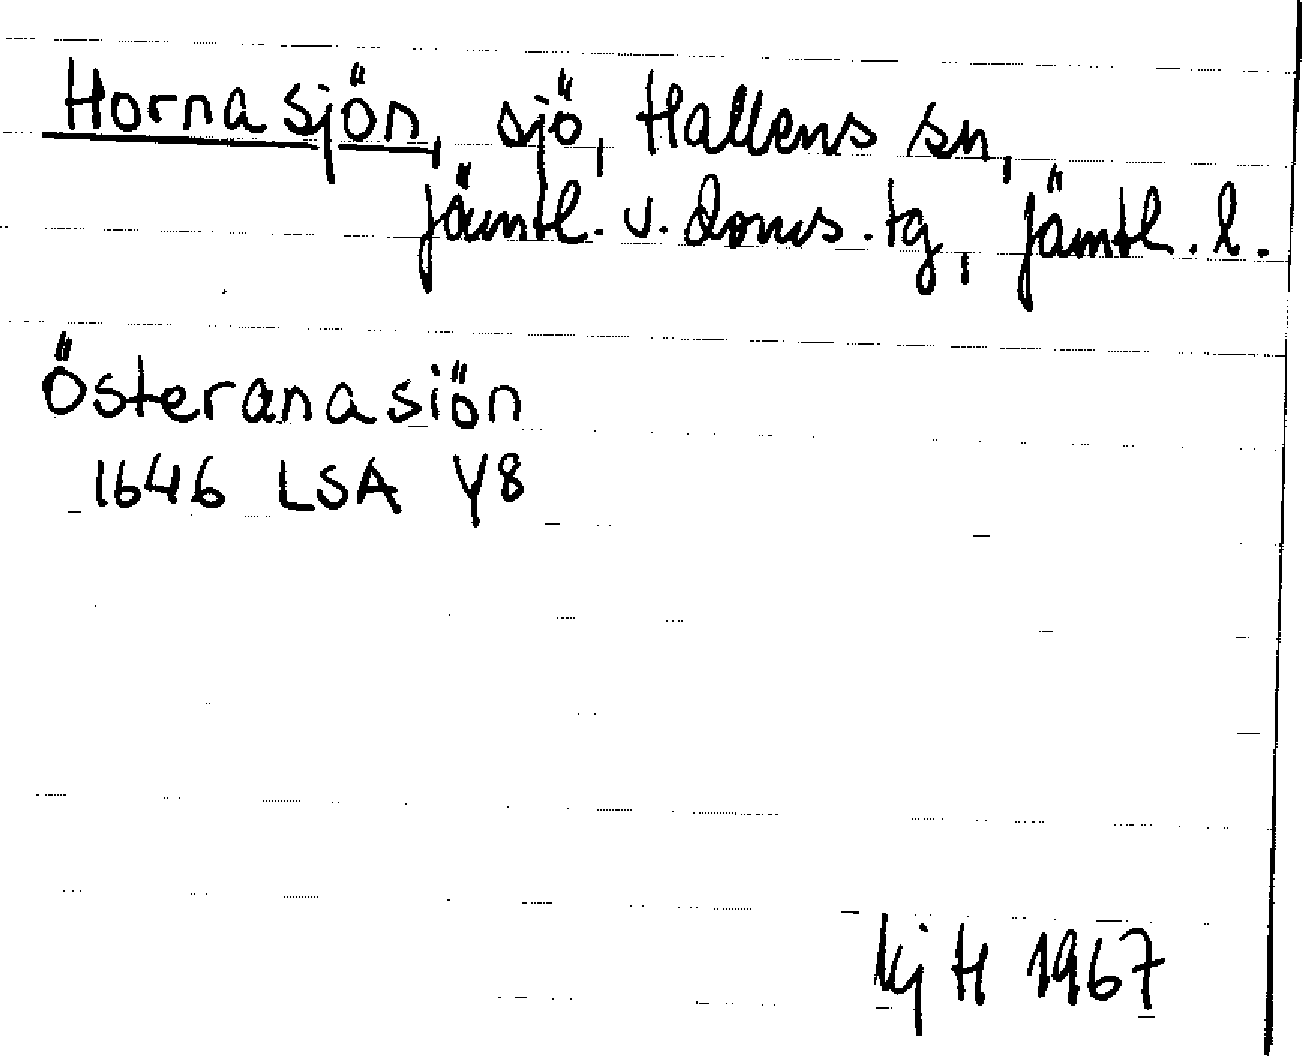 Hornasjön, sjö, Hallens sn,
Jämtl. v. doms. tg, Jämtl. l.
Österanasiön
1646 LSA Y8
Kj H 1967